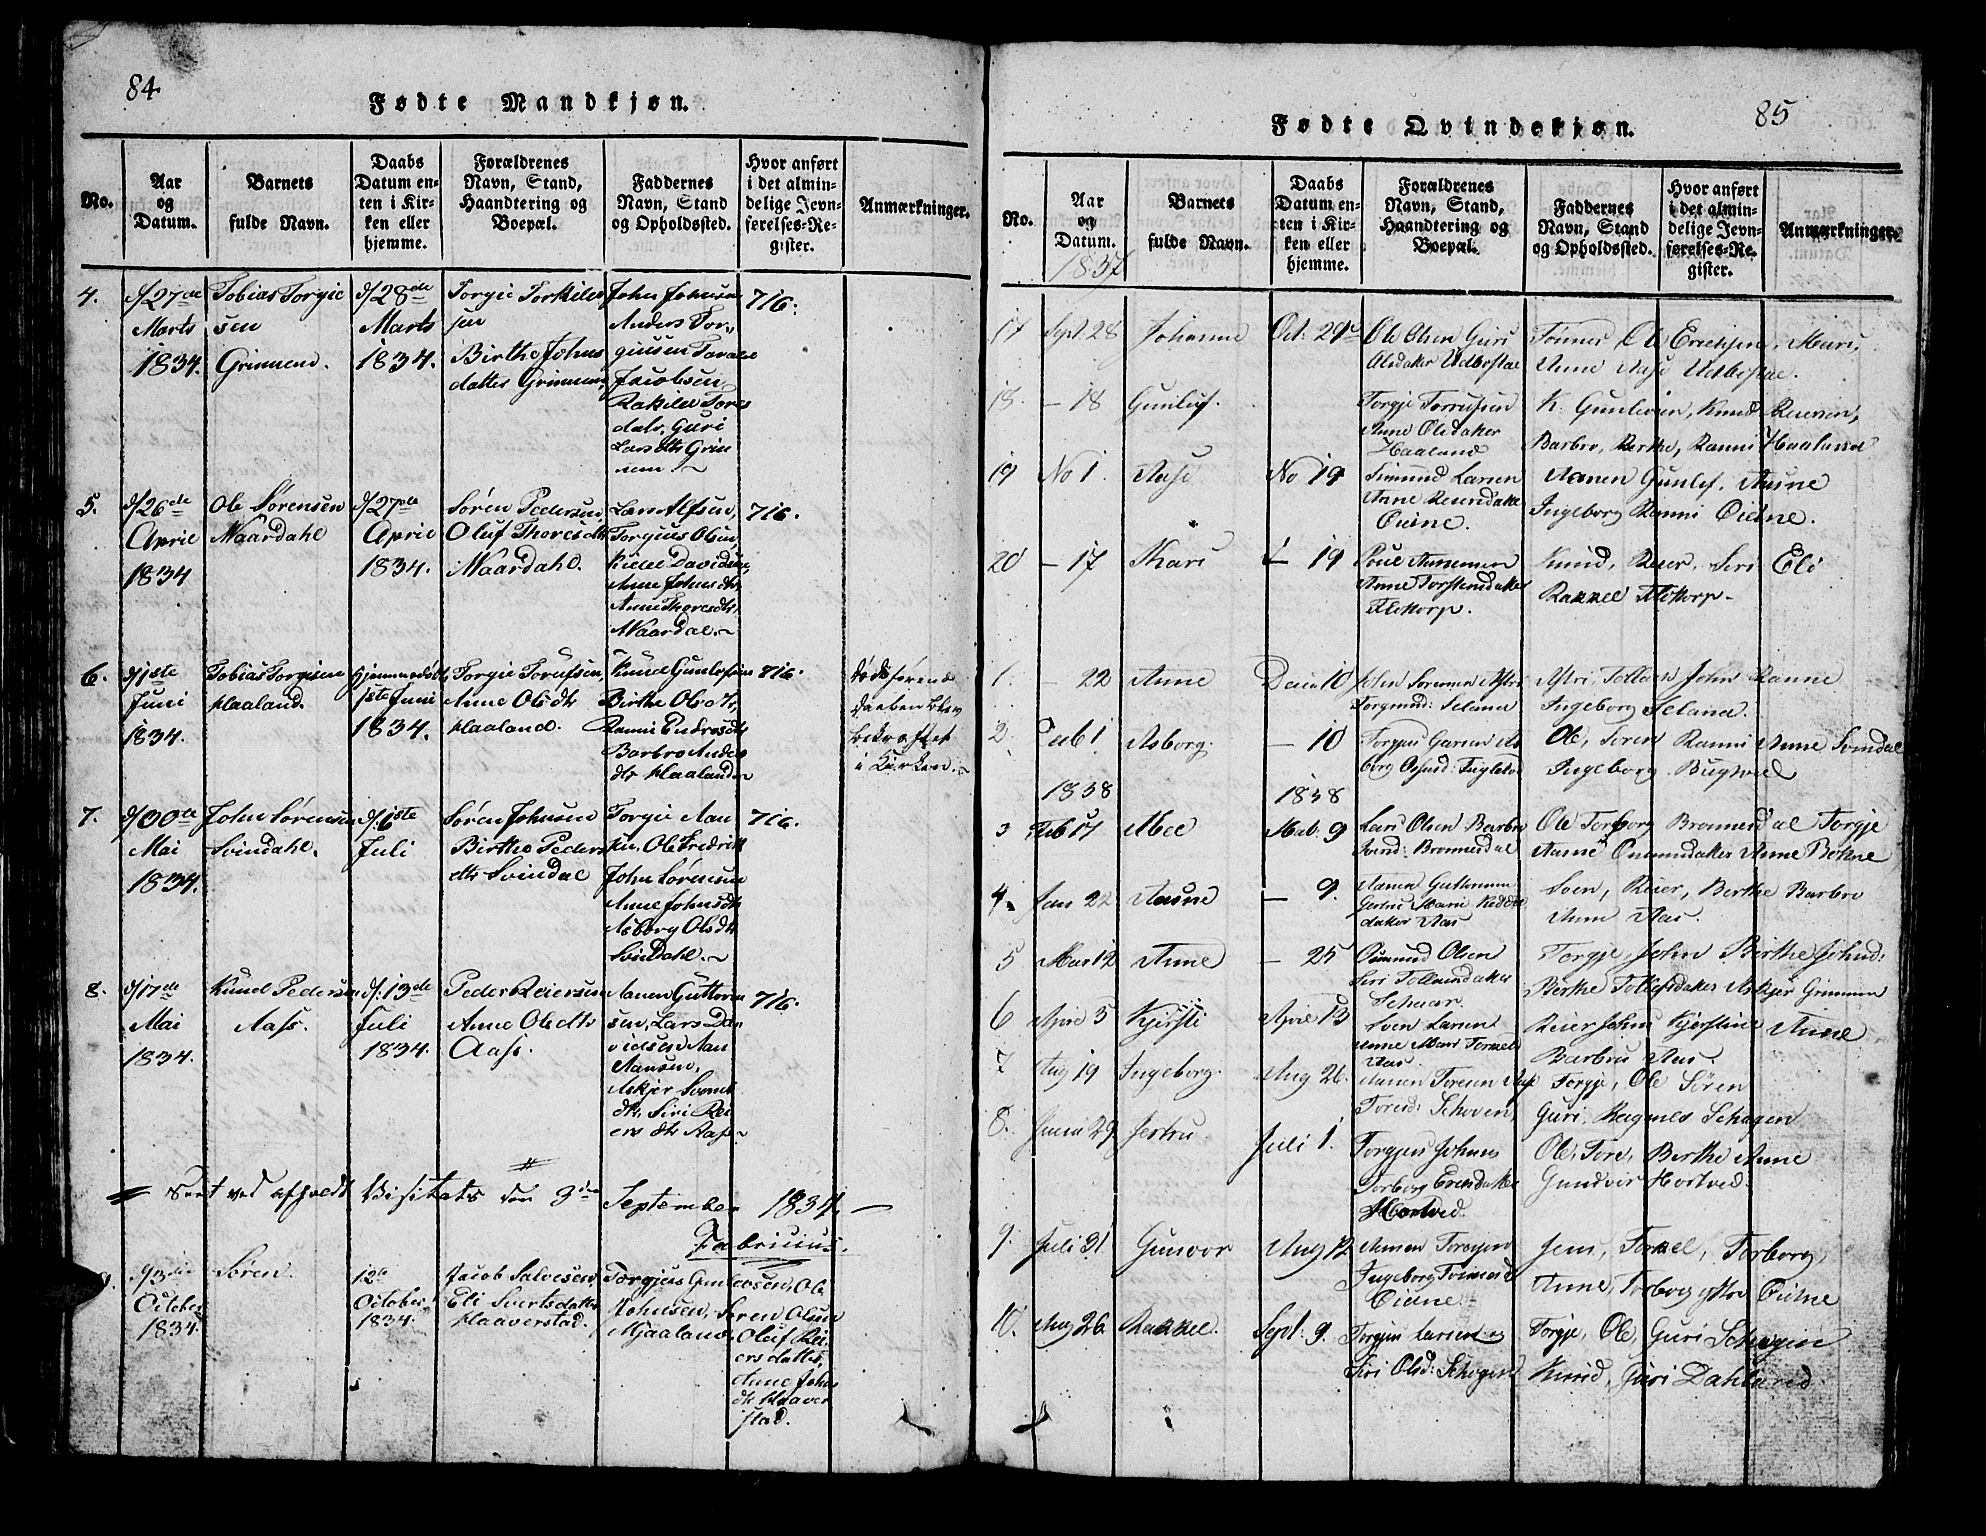 84
Fødte Mandkjøn.
No.
Aar
og
Datum.
Barnets
fulde Navn.
Daabs
Datum en-
ten i Kir-
ken eller
hjemme.
Forældrenes
Navn, Stand,
Haandtering og
Boepæl.
Faddernes
Navn, Stand
og Opholdssted.
Hvor anført
i det almin-
delige Jevn-
førelses-Re-
gister.
Anmærkninger.
4.
d/27de
Marts
1834.
Tobias Torgie
sen
Grimnem.
d/28de
Marts
1834.
Torgie Torkilds
sen
Birthe Johns
datter Grimnem
John Johnsen
Anders Tor-
giusen
Jacobsen
Rakilde Tores
datr, Guri
Lars dttr Grim
nem.
716.
5.
d/26de
April
1834
Ole Sørensen
Waardahl
d/27de
April
1834.
Søren Pedersen,
Oluf Thoresdtr
Waardahl.
Lars Alfsen,
Torgius Olsen,
Anne Johnsdtr
Anne Thoresdtr
Waardal.
716.
6.
d/1ste
Juni
1834.
Tobias Torgiesen
Haaland.
1ste Juni
1834.
Torgie Torufsen
Anne Olsdtr
Haaland.
Knud Gunlefsen
Birthe Olsdtr,
Ranni Endresdtr
Barbro Anders
dtr Haaland
716.
daaben blev
bekræftet
i Kirken.
7.
d/30te
Mai
1834.
John Sørensen
Svindahl.
d/6ste
Juli
Søren Johnsen
Birthe Peders
dtr Svindal
Torgie Aan
sen, Ole Fredrik
John Sørensen
Anne Johnsdtr
Asborg Olsdtr
Svindahl.
716.
8.
d/17de
Mai
1834.
Knud Pedersen
Aass.
d/13de
Juli
1834.
Peder Reiersen
Anne Olsdtr
Aass.
Aanen Guttorm
sen, Lars Da-
vidsen Aan
Aansen,
Askjer Svends
dtr, Siri Rei-
ers dtr Aass
716.
Seet ved afholdt Visitats den 3die September 1834.
Fabricius.
October
1834.
Søren.
12te
October
1834.
Jacob Salvesen,
Eli Sivertsdatter
Haaverstad.
Torgjus Gunlefsen, Ole
Johnsen, Søren Olsen
Mjaaland, Oluf Rei-
ersdatter,
Anne Johns
dtr Haaver
stad.
85
Fødte Qvindekjøn.
No.
Aar
og
Datum.
1837
Barnets
fulde Navn.
Daabs
Datum en-
ten i Kir-
ken eller
hjemme.
Forældrenes
Navn, Stand,
Haandtering og
Boepæl.
Faddernes
Navn, Stand
og Opholdssted.
Hvor anført
i det almin-
delige Jevn-
førelses-Re-
gister.
Anmærkninger.
17
Sept. 28
Johanne
Oct: 29
Ole Olsen Guri
Olsdater Udbostae
Tønnes, Ole Ericksen, Mari,
Anne Aase Udbostae.
18.
– 18
Gunluf.
Torgje Torrufsen
Anne Olsdaker
Haaland
K. Gunlevsen, Knud Reiersen,
Barbro, Berthe, Ranni Haaland
19
No 1.
Aase
No 19
Simund Larsen
Anne Reiersdater
Øidne.
Aanen Gunlef, Aasne
Ingeborg Ranni Øidne.
20
– 17
Kari
– 19
Poul Aanensen
Anne Torstensdater
Flottorp.
Knud, Reier, Siri Eli
Rakkel Flottorp.
1.
– 22
Anne
Decem 10
John Sørensen Astri
Torgmsd: Seland
Astri Tollac John Ranne
Ingeborg Seland.
2.
1.
Asborg.
– 10
Ole, Søren Ranni Anne Svindal
Ingeborg
1838
1838
3
Feb 17
Mab. 9
Lars Olsen Barbro
Svind: Bronnesdal
Ole Torborg Bronnesdal Torgje
Aanne Omundsdater Anne Berthe
4.
Jan 22
Aasne
– 9.
Aanen Guttormsen
Aas
Sven, Reier, Berthe Barbro
Anne Aas.
5
Mars 12
Anne
– 25
Omund Olsen
Siri Tollevsdater
Torgje, John Birthe Johnd:
Berthe Tollefsdater Askjer Grimnem
6
April 3
Kjersti
April 13
Sven Larsen
Anne Mari
Aas
Reier Johns Kjerstine Anne
Barbro Aas.
7
Aug 19
Ingeborg.
Aug 26.
Aanen Toresen Aase
Toresd: Schoven
Torgje, Ole Søren
Guri, Ragnes Schagen
8.
Juni 29
Jertru.
Juli 1.
Torgjus Johnes
Torborg
Hortved.
Ole, Tore, Berthe Anne
Gundvor Hortved.
9.
Juli 31.
Gunvor
Aug 12
Ingeborg
Øidne.
Jens, Tormel, Torborg
Anne, Torborg Øidne
10.
Aug 26.
Rakkel.
Sept. 9.
Torgjus Larsen og
Siri Olsd: Schagen
Torgje, Ole, Guri Schagen
Knud, Juri Dahland.